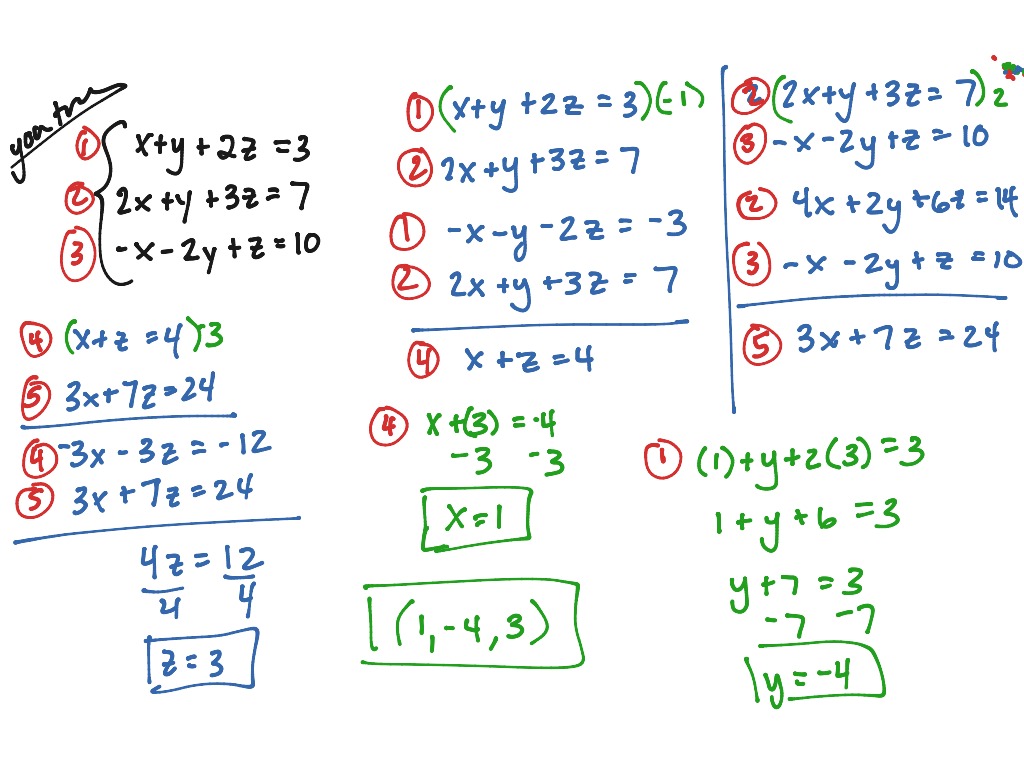 you try
① x+y+2z=3
② 2x+y+3z=7
③ -x-2y+z=10
① (x+y+2z=3)(-1)
② 2x+y+3z=7
① -x-y-2z=-3
② 2x+y+3z=7
④ x+z=4
② (2x+y+3z=7)2
③ -x-2y+z=10
② 4x+2y+6z=14
③ -x-2y+z=10
⑤ 3x+7z=24
④ (x+z=4)-3
⑤ 3x+7z=24
④ -3x-3z=-12
⑤ 3x+7z=24
4z=12
4 4
z=3
④ x+(3)=4
-3 -3
x=1
① (1)+y+2(3)=3
1+y+6=3
y+7=3
-7 -7
y=-4
(1,-4,3)